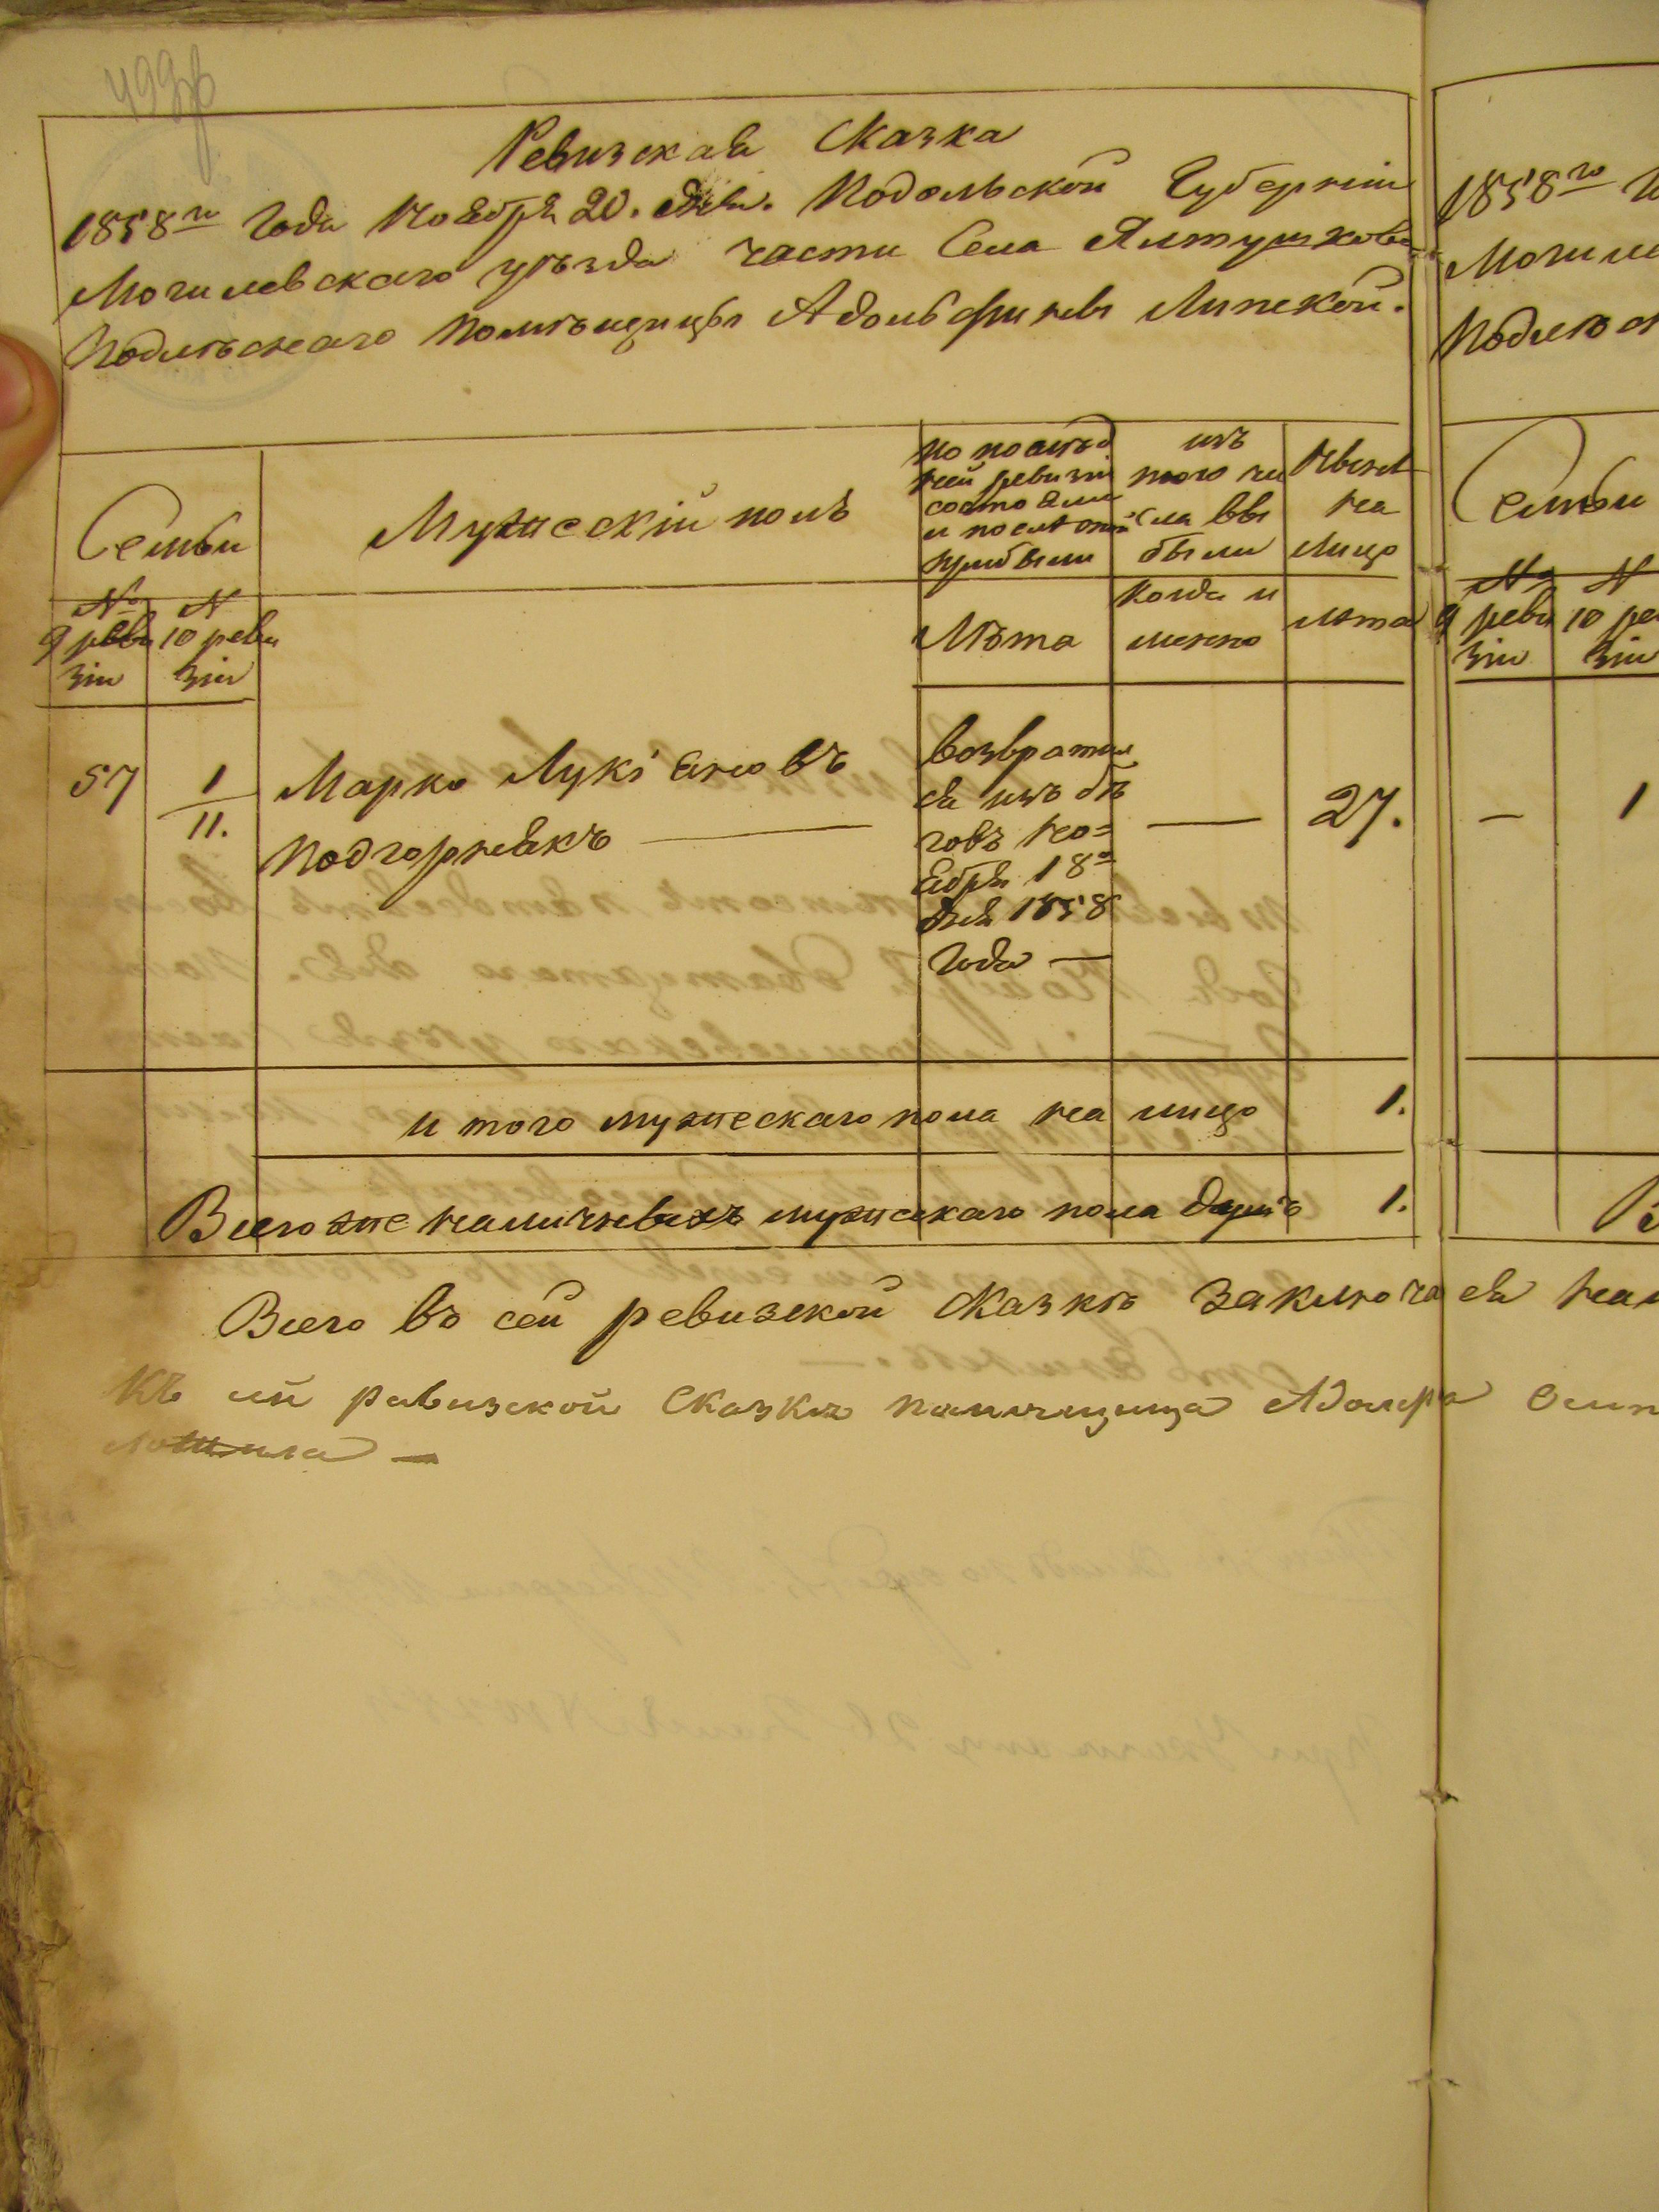 499об
Ревизская Сказка
1858го года Ноября 20. дня. Подольской Губернии
Могилевскаго уѣзда части Села Ялтушкова
Подлѣснаго помѣщицы Адольфины Липской.
Семьи
Мужескій полъ
по послѣд
ней ревизіи
состояли
и послѣ оной
прибыли
изъ
того чи
сла вы
были
Нынѣ
на
лицо
№ 9 реви
зіи
№ 10 реви
зіи
Лѣта
когда и
менно
лѣта
57
1
11.
Марко Лукіяновъ
Подгорнякъ —
возврати
ся изъ бѣ
говъ но=
ября 18го
дня 1858
года —
—
27.
и того мужескаго пола на лицо 1.
Всего же наличныхъ мужескаго пола душъ 1.
Всего во сей ревизской сказкѣ заключася нали
Къ сей ревизской сказкѣ помѣщица Адольфа
1858го
Могиле
Подлѣсн
Семьи
№ 9 реви
зіи
№ 10 ре
зіи
—
1
В